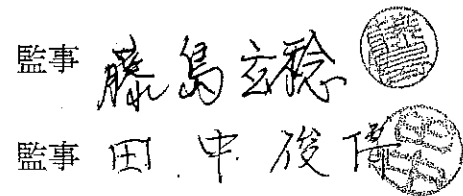 監事 藤島玄稔
監事 田中俊博